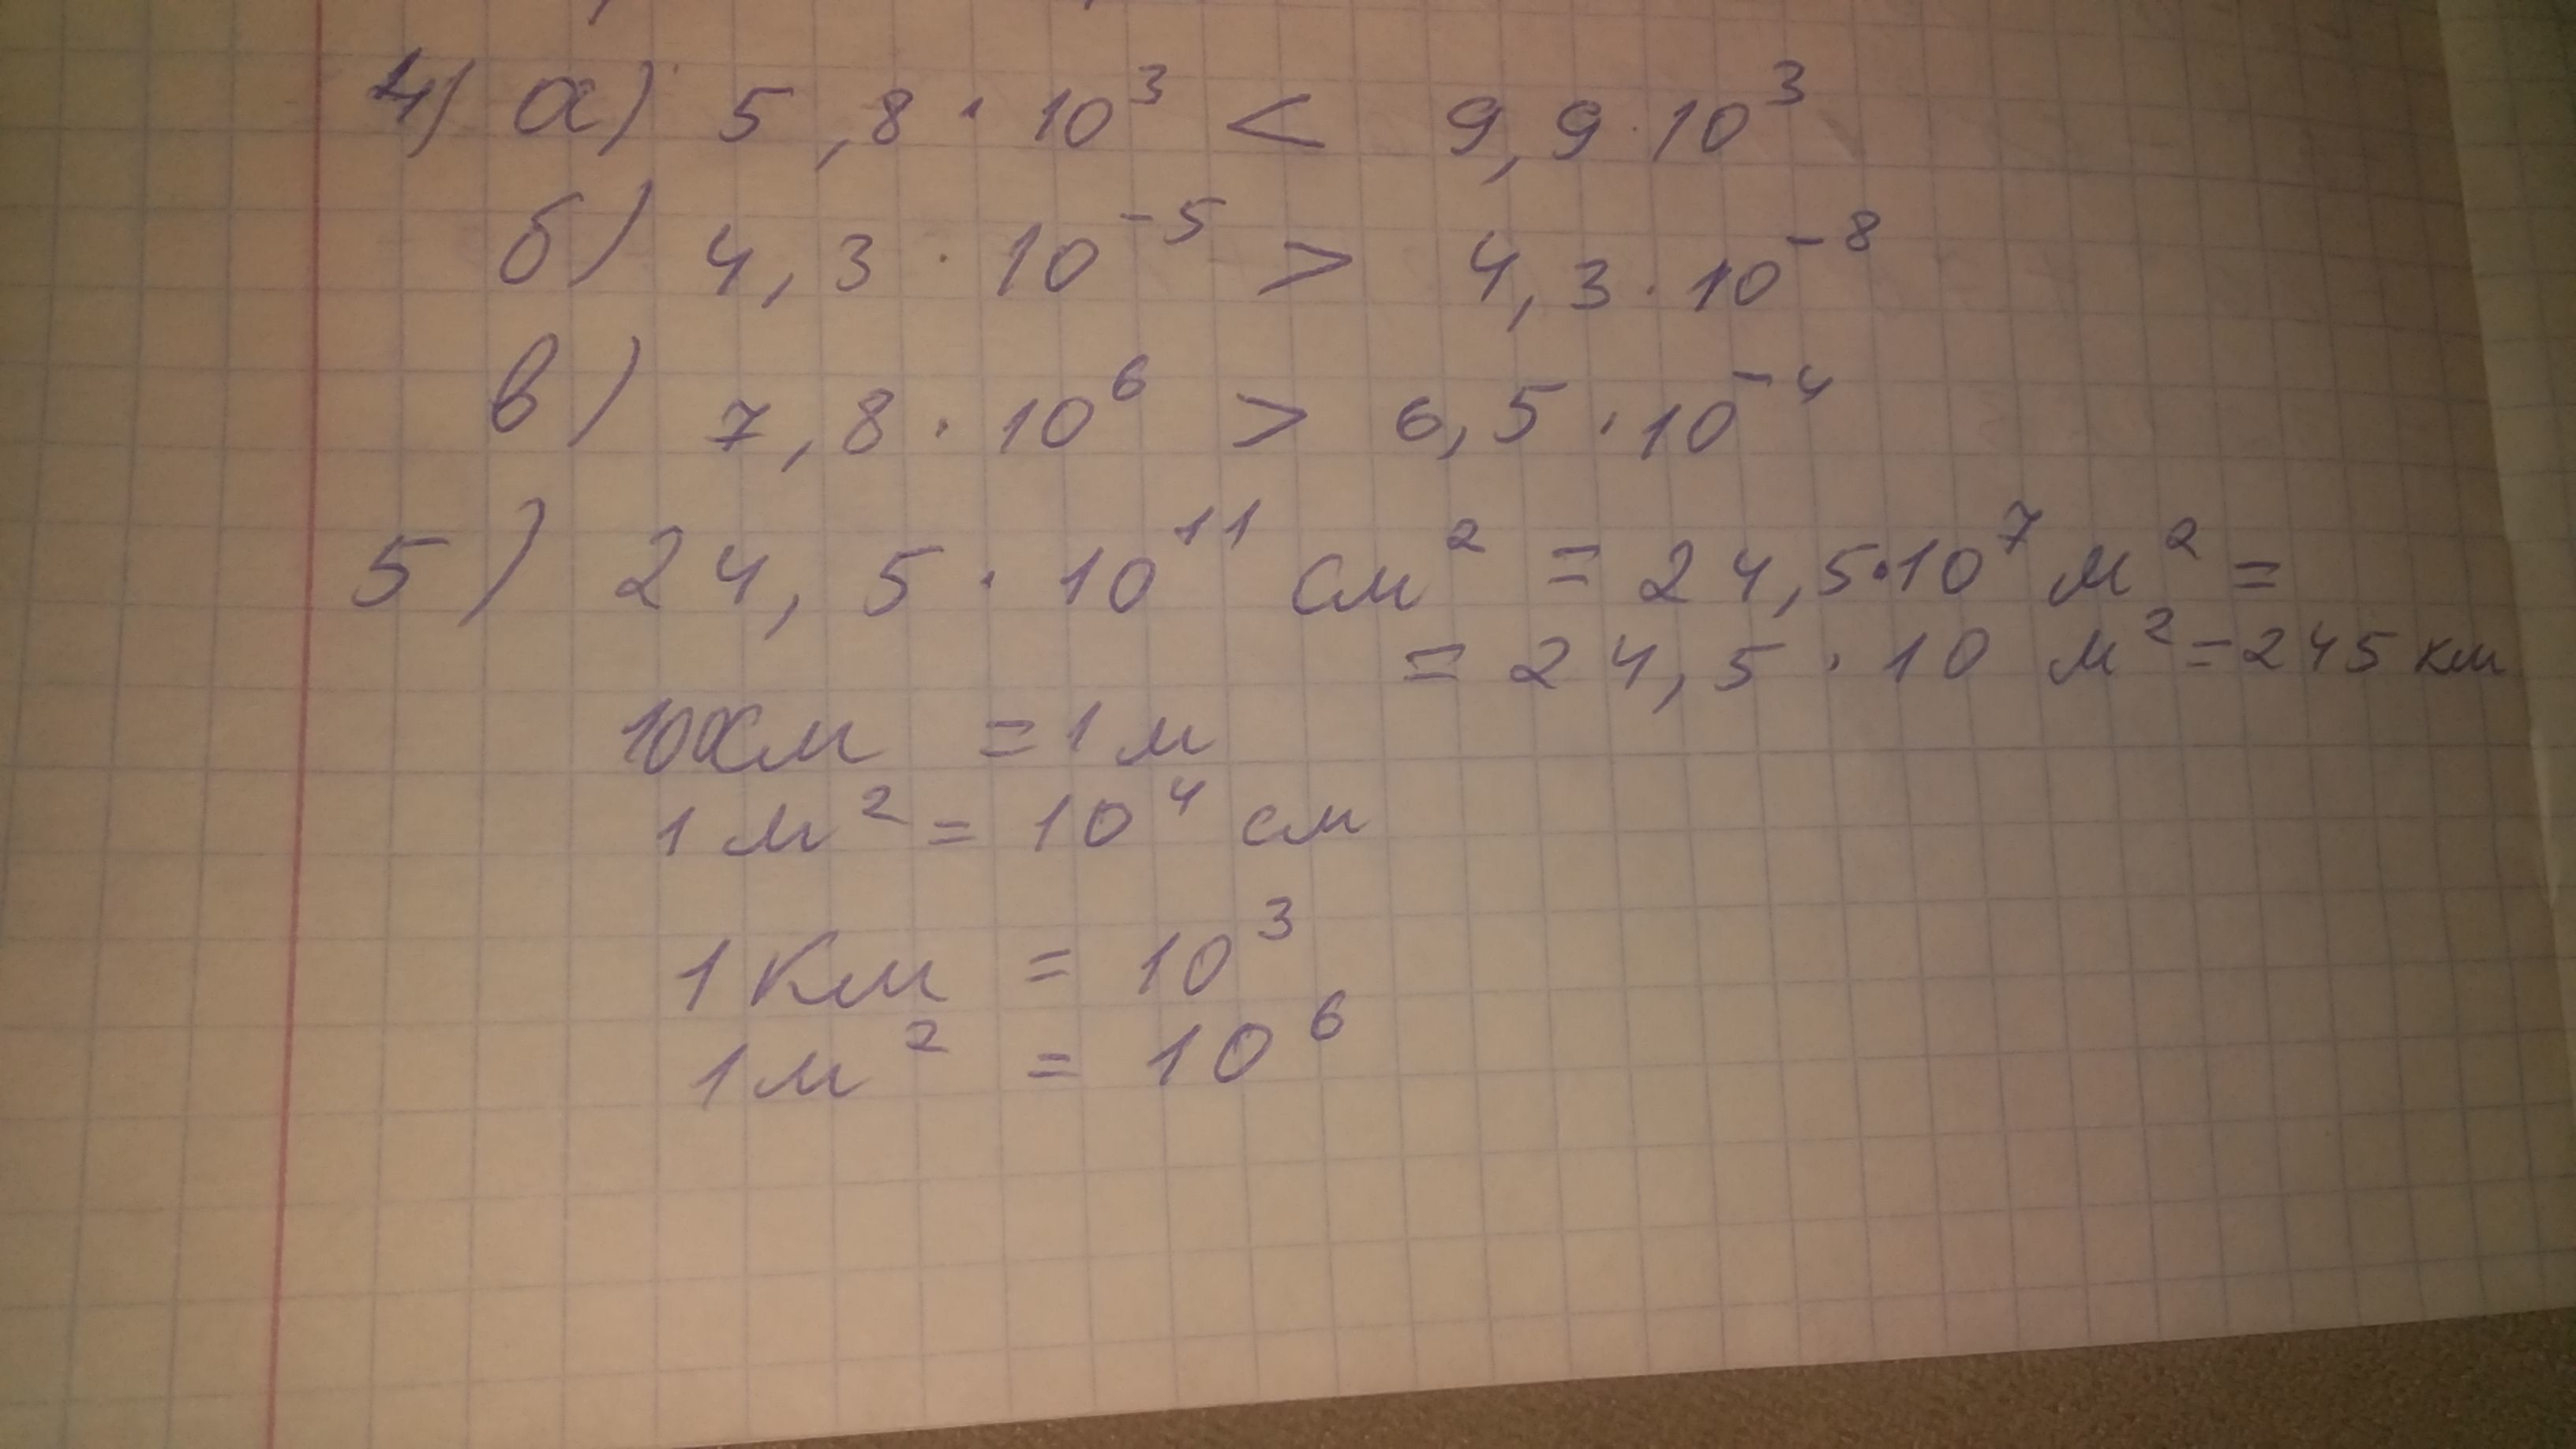 4) а) 5,8 · 10³ < 9,9 · 10³
б) 4,3 · 10⁻⁵ > 4,3 · 10⁻⁸
в) 7,8 · 10⁶ > 6,5 · 10⁻⁴
5) 24,5 · 10¹¹ см² = 24,5 · 10⁷ м² =
= 24,5 · 10 м² = 245 км
100см = 1 м
1 м² = 10⁴ см
1 Км = 10³
1 м² = 10⁶